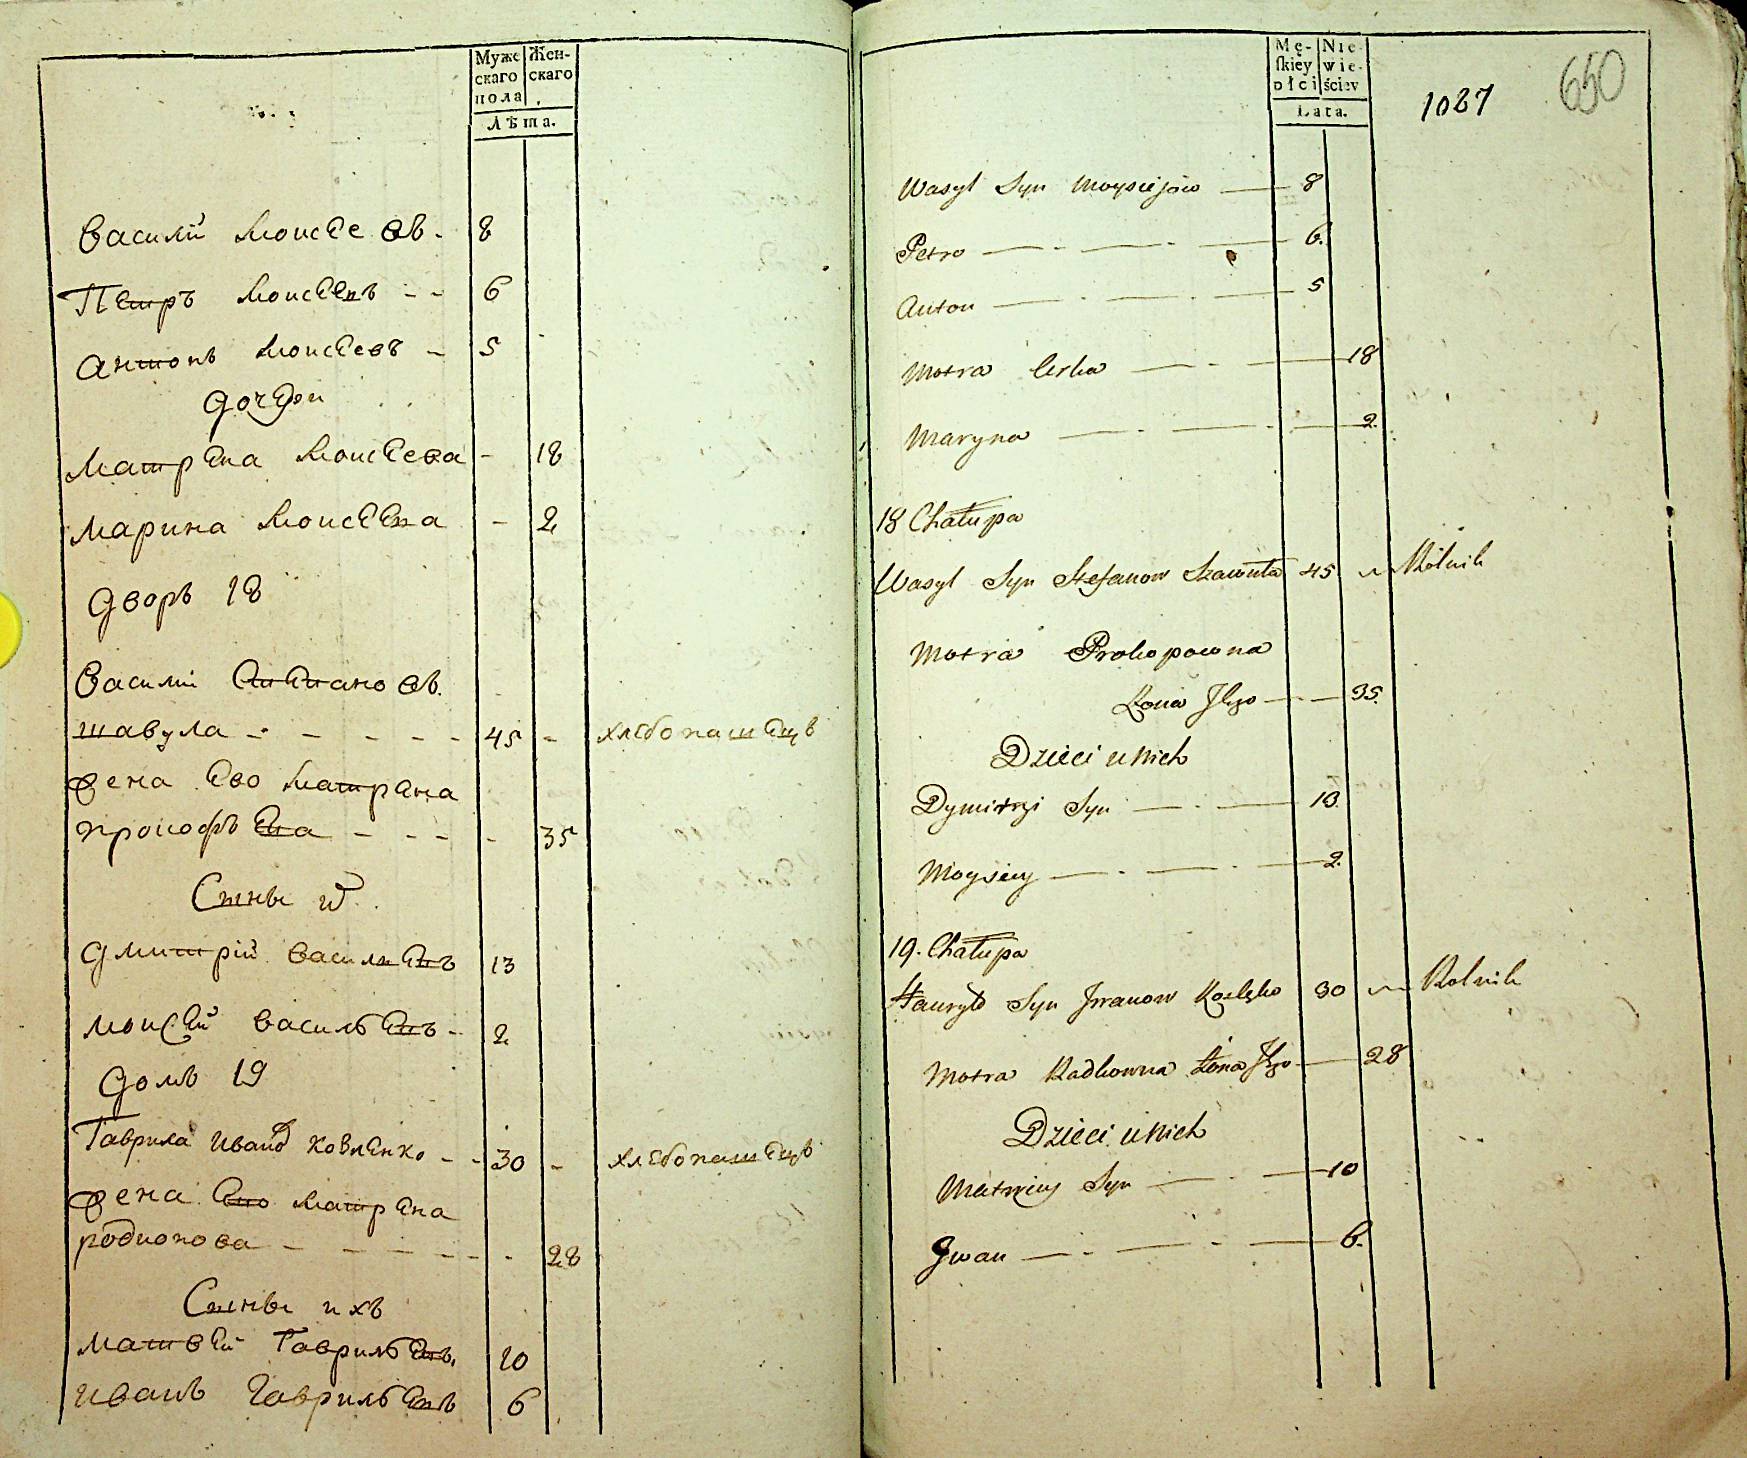 Муже скаго пола
Жен-скаго
Лѣта.
Василий Моисеевъ. 8
Петръ Моисеевъ - - 6
Антонъ Моисеевъ - 5
дочери
Матрена Моисеева - 18
Марина Моисеева - 2
дворъ 18
Василий Степановъ.
шавула - - - - - 45 - хлебопашецъ
жена Ево Матрена
прокофьева - - - - 35
Сыны и^х
дмитрій Васильевъ 13
Моисей Васильевъ - 2
домъ 19
Гаврила Иванов Козленко - - 30 - хлебопашецъ
жена Ево Матрена
родионова - - - - - - 28
Сыны ихъ
Матвей Гаврильевъ, 10
Иванъ Гаврильевъ 6
Mę-skiey płci
Nie-wie-ściey
Lata.
1027
650
Wasyl Syn Moysiejów — 8
Petro — - — - — 6.
Anton — - — - — 5
Motra Cerka — - — 18
Maryna — - — - — 2.
18 Chałupa
Wasyl Syn Stefanow Szawuła 45 ~ Rolnik
Motra Prokopowna
Żona Jego — - — 35.
Dzieci u Nich
Dymitryi Syn — - — 13
Moysiey — - — - — 2.
19. Chałupa
Hauryło Syn Jwanow Kozlęko 30 ~ Rolnik
Motra Radkowna Żona Jego — 28
Dzieci u Nich
Matwiey Syn — - — 10
Jwan — - — - — 6.